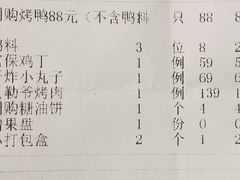 购烤鸭88元(不含鸭料 只 88 8
料 3 位 8 2
保鸡丁 1 例 59 5
炸小丸子 1 例 69 6
勒爷烤肉 1 例 139 1
购糖油饼 1 个 4 4
果盘 1 份 0 0
打包盒 2 个 1 2